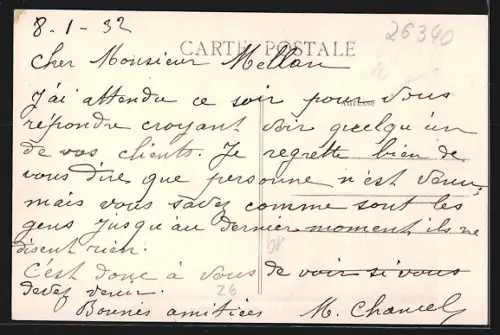 8-1-32
26340
CARTE POSTALE
Cher Monsieur Mellan
J'ai attendu ce soir pour vous
répondre croyant voir quelqu'un
de vos clients. Je regrette bien de
vous dire que personne n'est venu,
mais vous savez comme sont les
gens jusqu'au dernier moment ils ne
disent rien.
C'est donc à vous de voir si vous
devez venir.
26
Bonnes amitiées M. Chancel